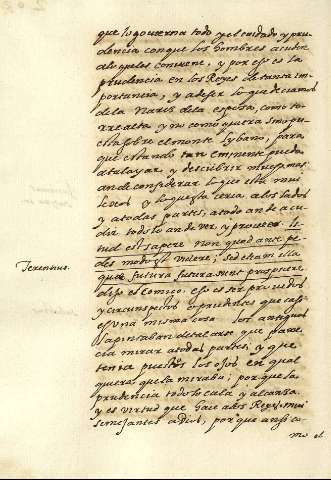 que lo gouierna todo y el cuidado y pru
dencia con que los hombres acuden
a lo que les conuiene, y por eso es la
prudencia en los Reyes de tanta im
portancia, y a de ser lo que deciamos
de la Nariz de la esposa, como to
rre alta y no como quiera sino pue
sta sobre el monte Lybano, para
que estando tan eminente pueda
atalayar, y descubrir
an de considerar lo que esta mui
lexos y lo que esta cerca a los lados
y a todas partes, a todo an de acu
dir todo lo an de ver, y proueer. Is
tud est sapere non quod ante pe
des modo est videre; sed etiam illa
quae futura sunt prospicere
Terentius.
dijo el Comico, eso es ser
y circunspectos o prudentes que casi
es una misma cosa los antiguos
la pintaban de tal arte que pare
cia mirar a todas partes, y que
tenia puestos los ojos en qual
quiera que la miraba; por que la
prudencia todo lo cala y alcansa.
y es virtud que hace a los Reyes mui
semejantes a dios, por que ansi co
mo el